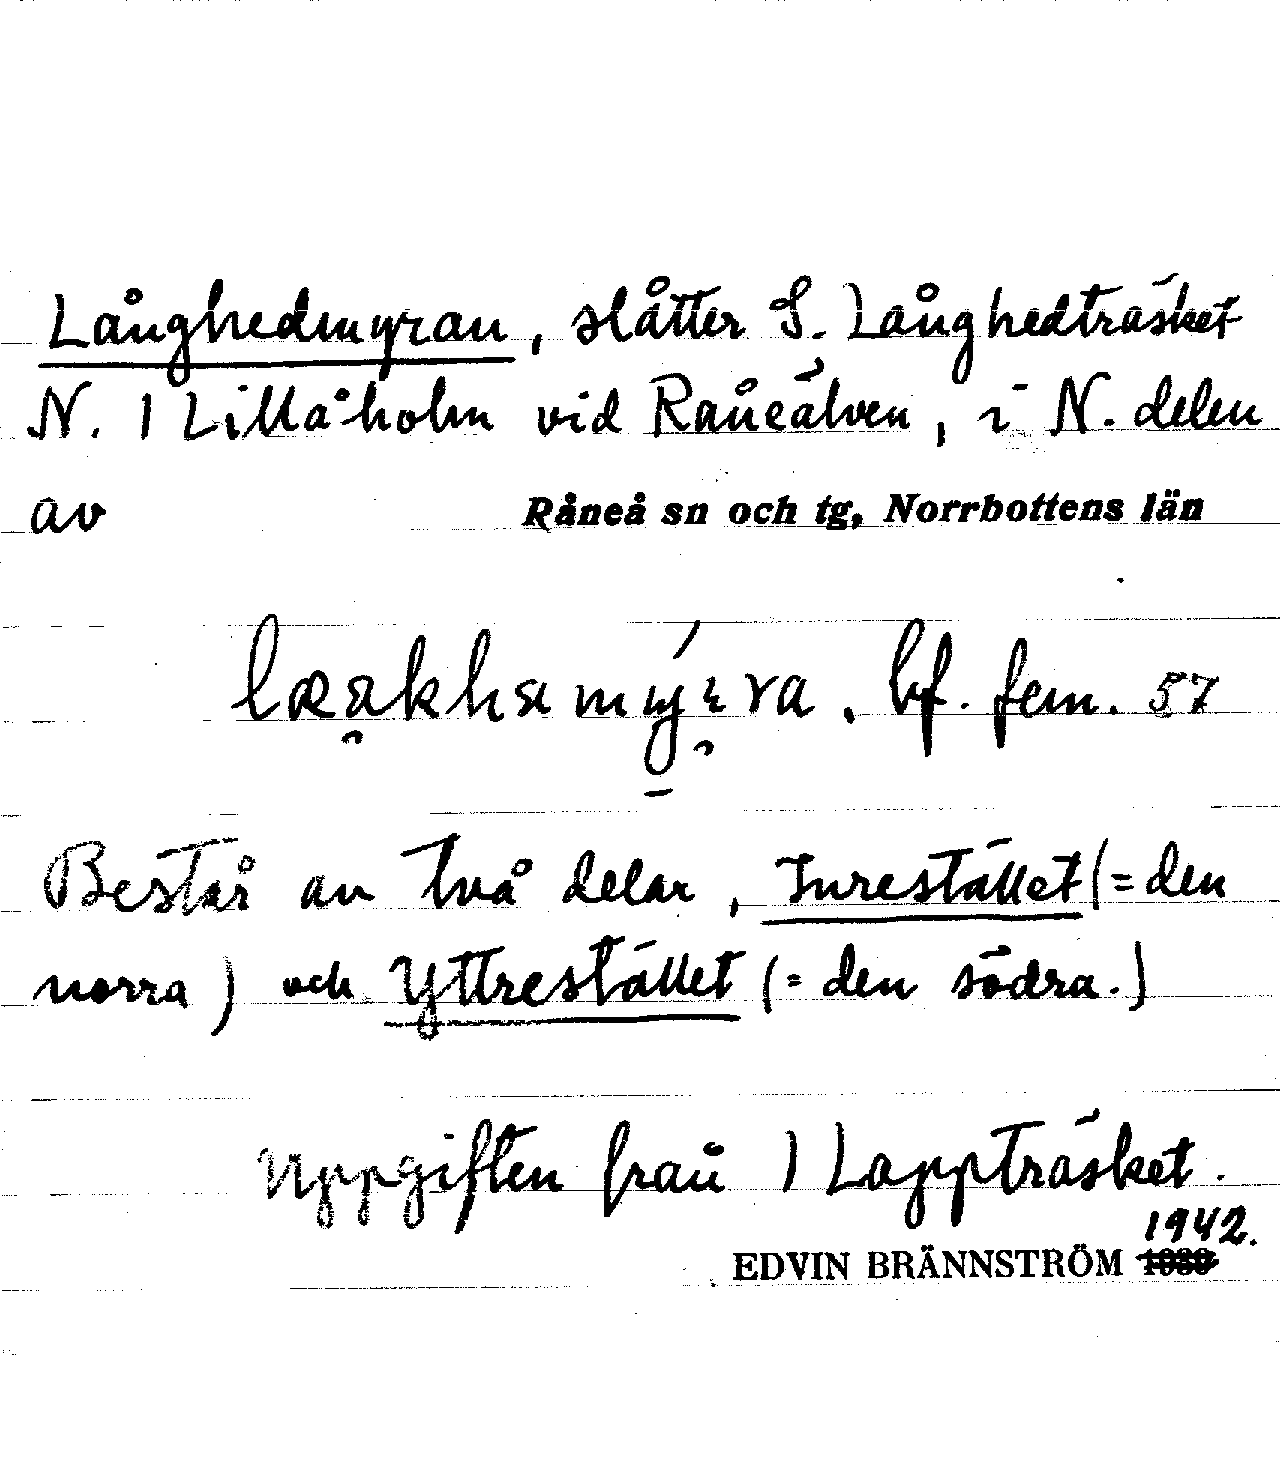 Långhedmyran, slåtter S. Långhedträsket
N. l Lillåholm vid Råneälven, i N. delen
av Råneå sn och tg, Norrbottens län
bf. fem. 57
Består av två delar, Inrestället (= den
norra) och Yttrestället (= den södra.)
Uppgiften från l Lappträsket.
1942.
EDVIN BRÄNNSTRÖM